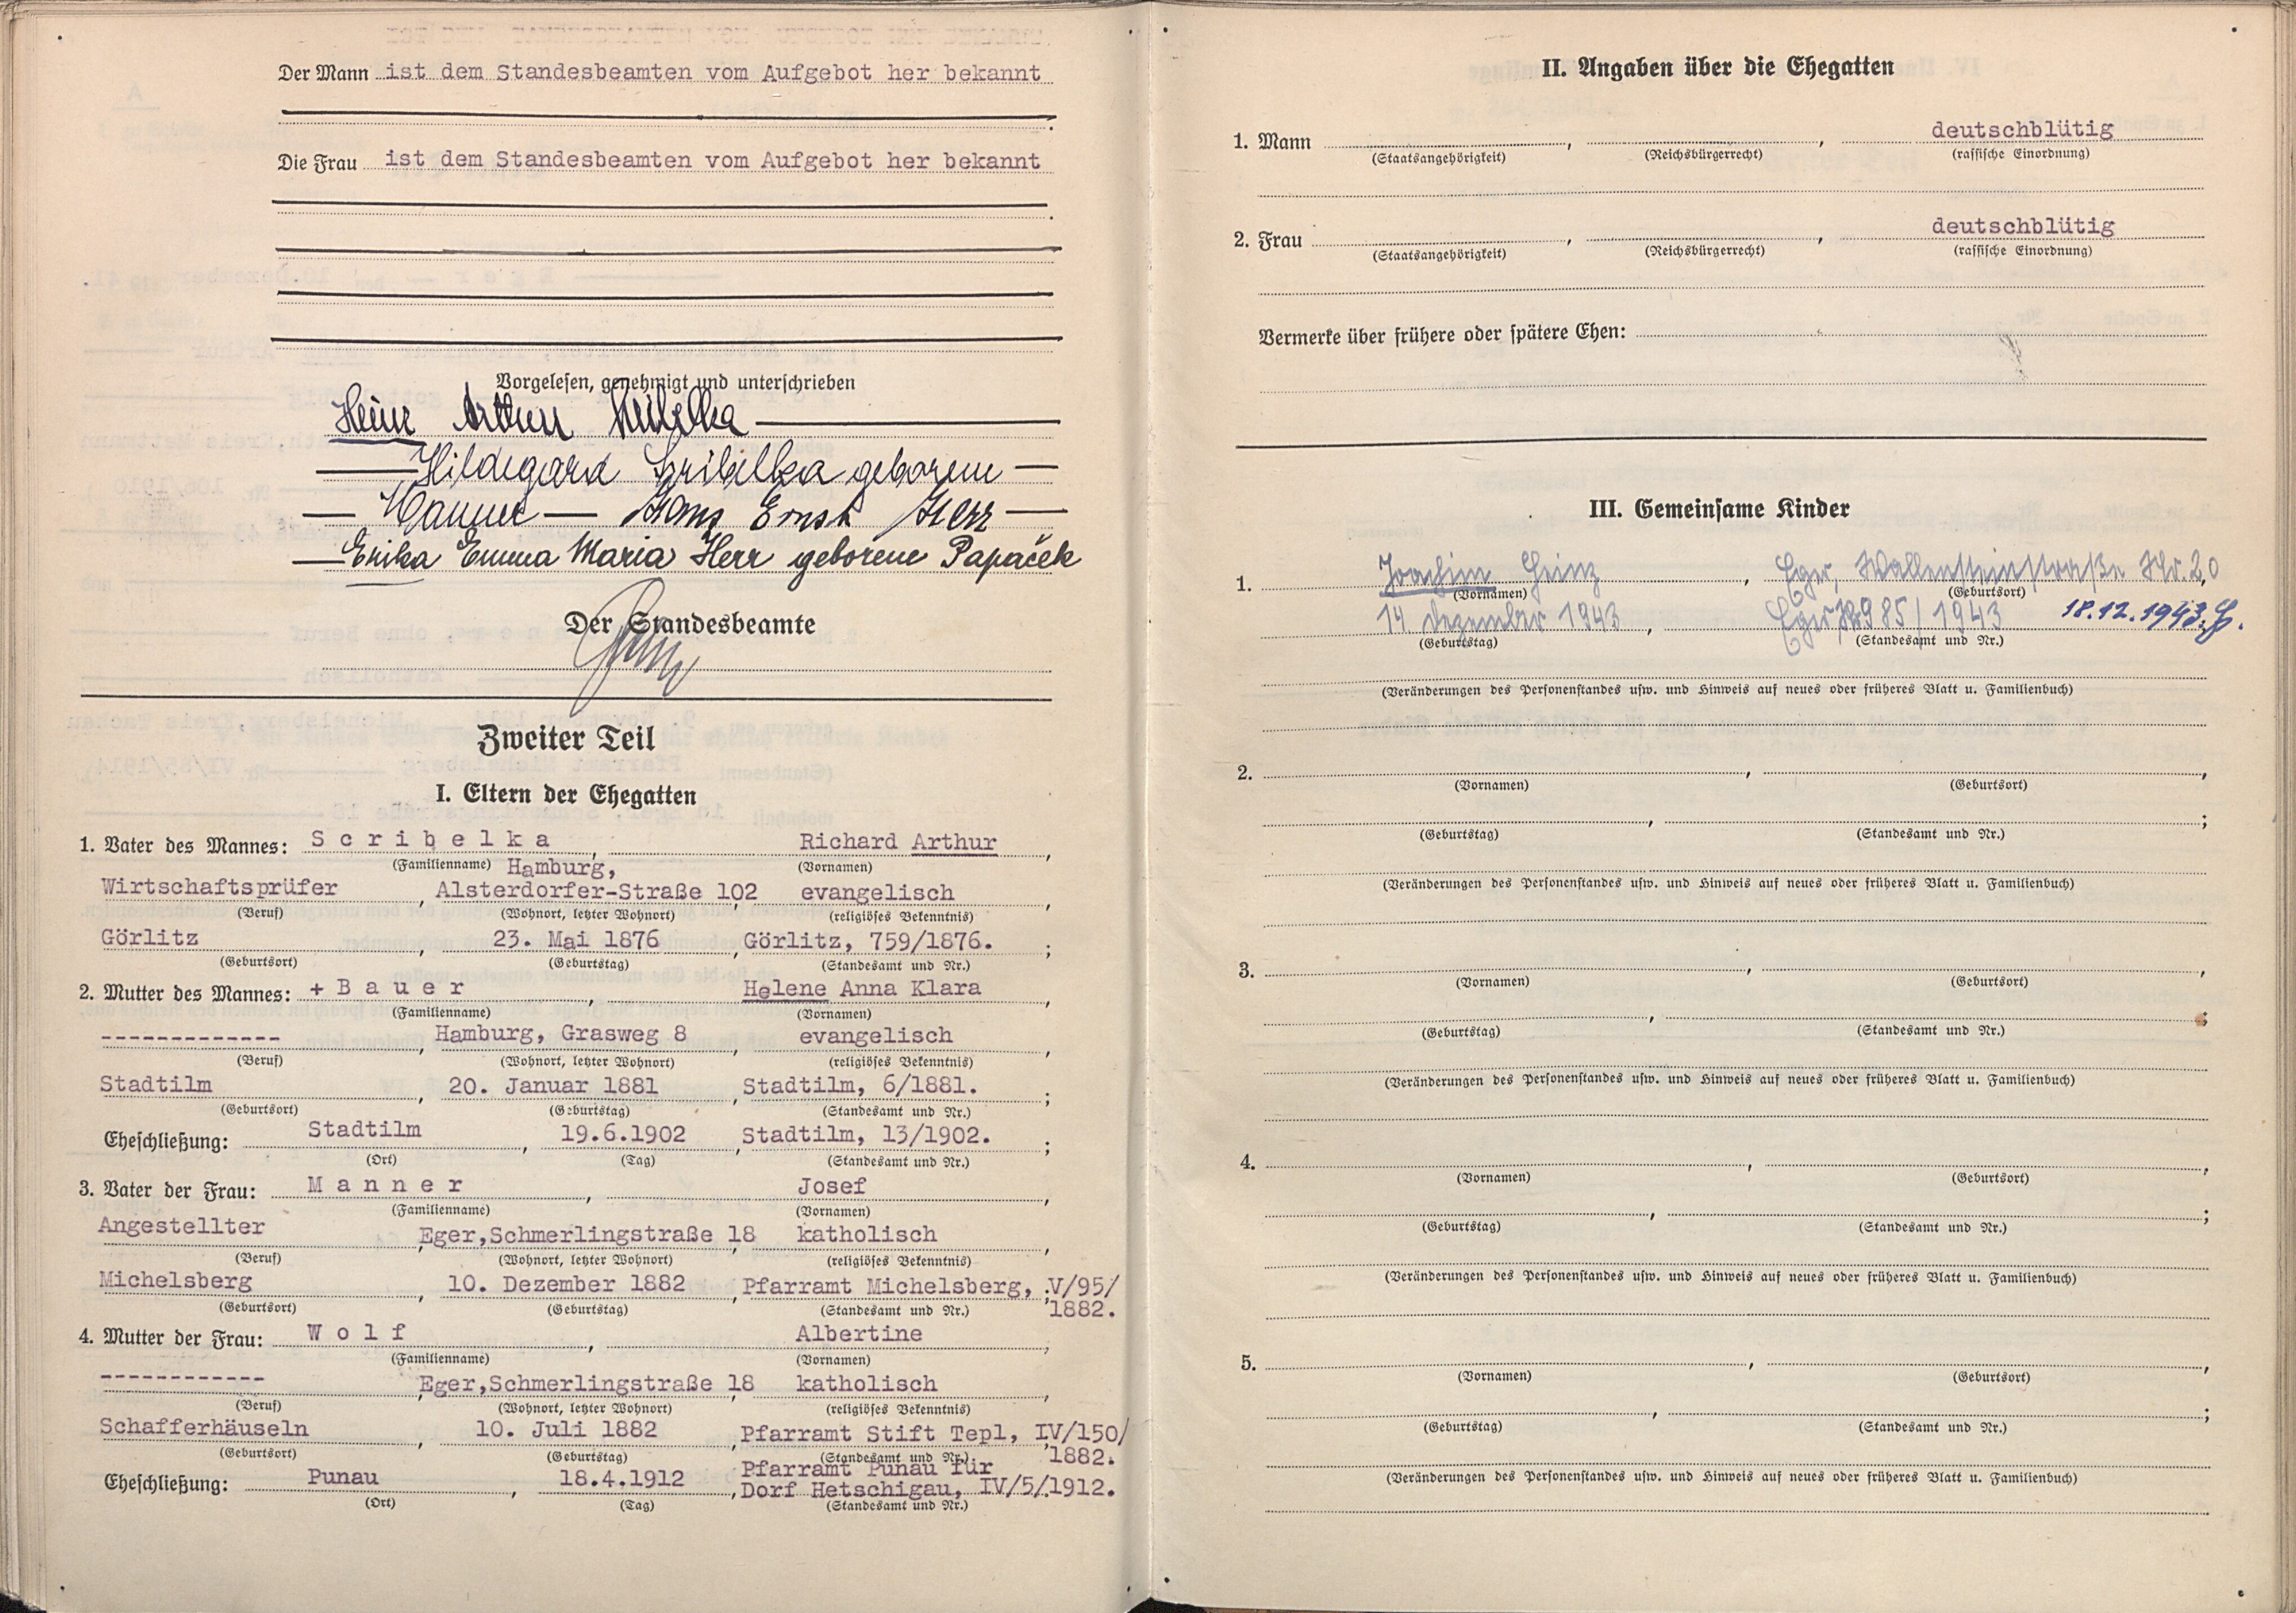 Der Mann ist dem Standesbeamten vom Aufgebot her bekannt
Die Frau ist dem Standesbeamten vom Aufgebot her bekannt
Vorgelesen, genehmigt und unterschrieben
Heinz Arthur Scribelka
Hildegard Scribelka geborene
Manner — Hans Ernst Herr
Erika Emma Maria Herr geborene Papaček
Der Standesbeamte
Zweiter Teil
I. Eltern der Ehegatten
1. Vater des Mannes: Scribelka, Richard Arthur,
(Familienname) (Vornamen)
Hamburg,
Wirtschaftsprüfer, Alsterdorfer-Straße 102, evangelisch,
(Beruf) (Wohnort, letzter Wohnort) (religiöses Bekenntnis)
Görlitz, 23. Mai 1876, Görlitz, 759/1876. ;
(Geburtsort) (Geburtstag) (Standesamt und Nr.)
2. Mutter des Mannes: + Bauer, Helene Anna Klara,
(Familienname) (Vornamen)
-------------, Hamburg, Grasweg 8, evangelisch,
(Beruf) (Wohnort, letzter Wohnort) (religiöses Bekenntnis)
Stadtilm, 20. Januar 1881, Stadtilm, 6/1881. ;
(Geburtsort) (Geburtstag) (Standesamt und Nr.)
Eheschließung: Stadtilm, 19.6.1902, Stadtilm, 13/1902. ;
(Ort) (Tag) (Standesamt und Nr.)
3. Vater der Frau: Manner, Josef,
(Familienname) (Vornamen)
Angestellter, Eger,Schmerlingstraße 18, katholisch,
(Beruf) (Wohnort, letzter Wohnort) (religiöses Bekenntnis)
Michelsberg, 10. Dezember 1882, Pfarramt Michelsberg, ; V/95/
(Geburtsort) (Geburtstag) (Standesamt und Nr.) 1882.
4. Mutter der Frau: Wolf, Albertine,
(Familienname) (Vornamen)
------------, Eger,Schmerlingstraße 18, katholisch,
(Beruf) (Wohnort, letzter Wohnort) (religiöses Bekenntnis)
Schafferhäuseln, 10. Juli 1882, Pfarramt Stift Tepl, IV/150/
(Geburtsort) (Geburtstag) (Standesamt und Nr.) 1882.
Pfarramt Punau für
Eheschließung: Punau, 18.4.1912, Dorf Hetschigau, IV/5/1912.
(Ort) (Tag) (Standesamt und Nr.)
II. Angaben über die Ehegatten
1. Mann , , deutschblütig
(Staatsangehörigkeit) (Reichsbürgerrecht) (rassische Einordnung)
2. Frau , , deutschblütig
(Staatsangehörigkeit) (Reichsbürgerrecht) (rassische Einordnung)
Vermerke über frühere oder spätere Ehen:
III. Gemeinsame Kinder
1. Joachim Heinz, Eger, Wallensteinstraße Nr. 20,
(Vornamen) (Geburtsort)
14. Dezember 1943, Eger 985/1943 18.12.1943.
(Geburtstag) (Standesamt und Nr.)
(Veränderungen des Personenstandes usw. und Hinweis auf neues oder früheres Blatt u. Familienbuch)
2. , ,
(Vornamen) (Geburtsort)
, ;
(Geburtstag) (Standesamt und Nr.)
(Veränderungen des Personenstandes usw. und Hinweis auf neues oder früheres Blatt u. Familienbuch)
3. , ,
(Vornamen) (Geburtsort)
, ;
(Geburtstag) (Standesamt und Nr.)
(Veränderungen des Personenstandes usw. und Hinweis auf neues oder früheres Blatt u. Familienbuch)
4. , ,
(Vornamen) (Geburtsort)
, ;
(Geburtstag) (Standesamt und Nr.)
(Veränderungen des Personenstandes usw. und Hinweis auf neues oder früheres Blatt u. Familienbuch)
5. , ,
(Vornamen) (Geburtsort)
, ;
(Geburtstag) (Standesamt und Nr.)
(Veränderungen des Personenstandes usw. und Hinweis auf neues oder früheres Blatt u. Familienbuch)